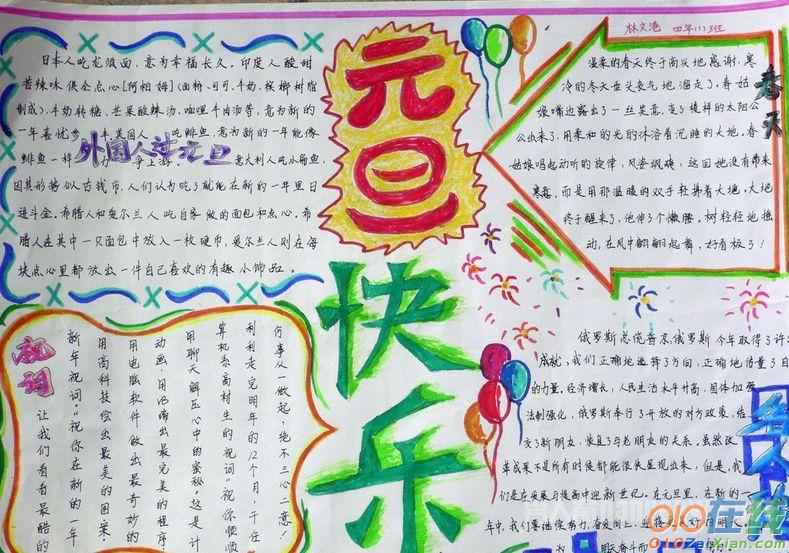 日本人吃龙须面，意为幸福长久。印度人酸甜
苦辣味俱全点心[阿柏姆](面粉、可可、牛奶、槟榔树脂
制成)、牛奶转糖、芒果酸辣汤、咖哩牛肉汤等，意为新的
一年喜忧参
美国人
吃鲱鱼，意为新的一年能像
鲱鱼一样
力争上游。意大利人吃小扁鱼，
外国人过元旦
因其形势似古钱币，人们认为吃了就能在新的一年里日
进斗金。希腊人和爱尔兰人吃自家做的面包和点心。希
腊人在其中一只面包中放入一枚硬币，爱尔兰人则在每
块点心里都放出一件自己喜欢的有趣小饰品。
元旦
快乐
林文港 四年(1)班
春天
温柔的春天终于高兴地
寒
冷的冬天垂头丧气地溜走了。春姑
娘嘴边露出了一丝笑意，
太阳公
公出来了，用柔和的光的沐浴着沉睡的大地，春
姑娘唱起动听的旋律，风姿飒飒，这回她没有带来
寒意，而是用那温暖的双手轻拂着大地。大地
终于醒来了，他伸了个懒腰。树轻轻地摇
动，在风中翩翩起舞，好看极了！
祝词
何事从一做起，绝不三心二意！
利利走完明年的12个月，千任
算机系高材生的祝词“祝你顺顺
用聊天解压心中的密秘。这是计
动画，用VB编出最完美的程序，
用电脑软件做出最奇妙的
用高科技绘出最美的图案，
新年祝词“祝你在新的一年
让我们看看最酷的
俄罗斯总统普京：俄罗斯今年取得了许
成就，我们正确地选择了方向，正确地估量了自
的力量。经济增长，人民生活水平升高，国体加强
法制强化，俄罗斯奉行了开放的对方政策，结
交了新朋友，恢复了与老朋友的关系。虽然改
革成果不是所有时候都能很快显现出来，但是，我
们是在发展与提高中迎新世纪。在元旦里，在新的一
年中，我们要继续努力，奋发向上，迎接更美好的明天。
010在线
010ZaiXian.com